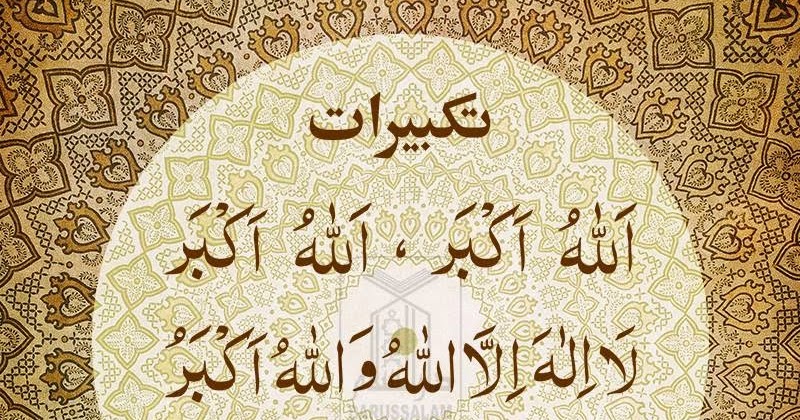 تكبيرات
اَللّٰهُ اَكْبَر ، اَللّٰهُ اَكْبَر
لَا اِلٰهَ اِلَّا اللّٰهُ وَاللّٰهُ اَكْبَرُ
DARUSSALAM